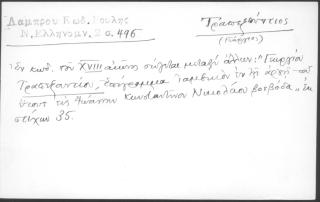 Λάμπρου Κωδ. Βουλής
Ν.Ἑλληνομν. 2 σ. 496
Τραπεζούντιος
(Γεώργιος)
Ἐν κωδ. τοῦ XVIII αἰῶνος σῴζεται μεταξὺ ἄλλων: "Γεωργίου
Τραπεζουντίου, ἐπίγραμμα ἰαμβικὸν ἐν τῇ ἀρχῇ τοῦ
τις Ἰωάννου Κωνσταντίνου Νικολάου βοεβόδα". Ἐκ
στίχων 35.